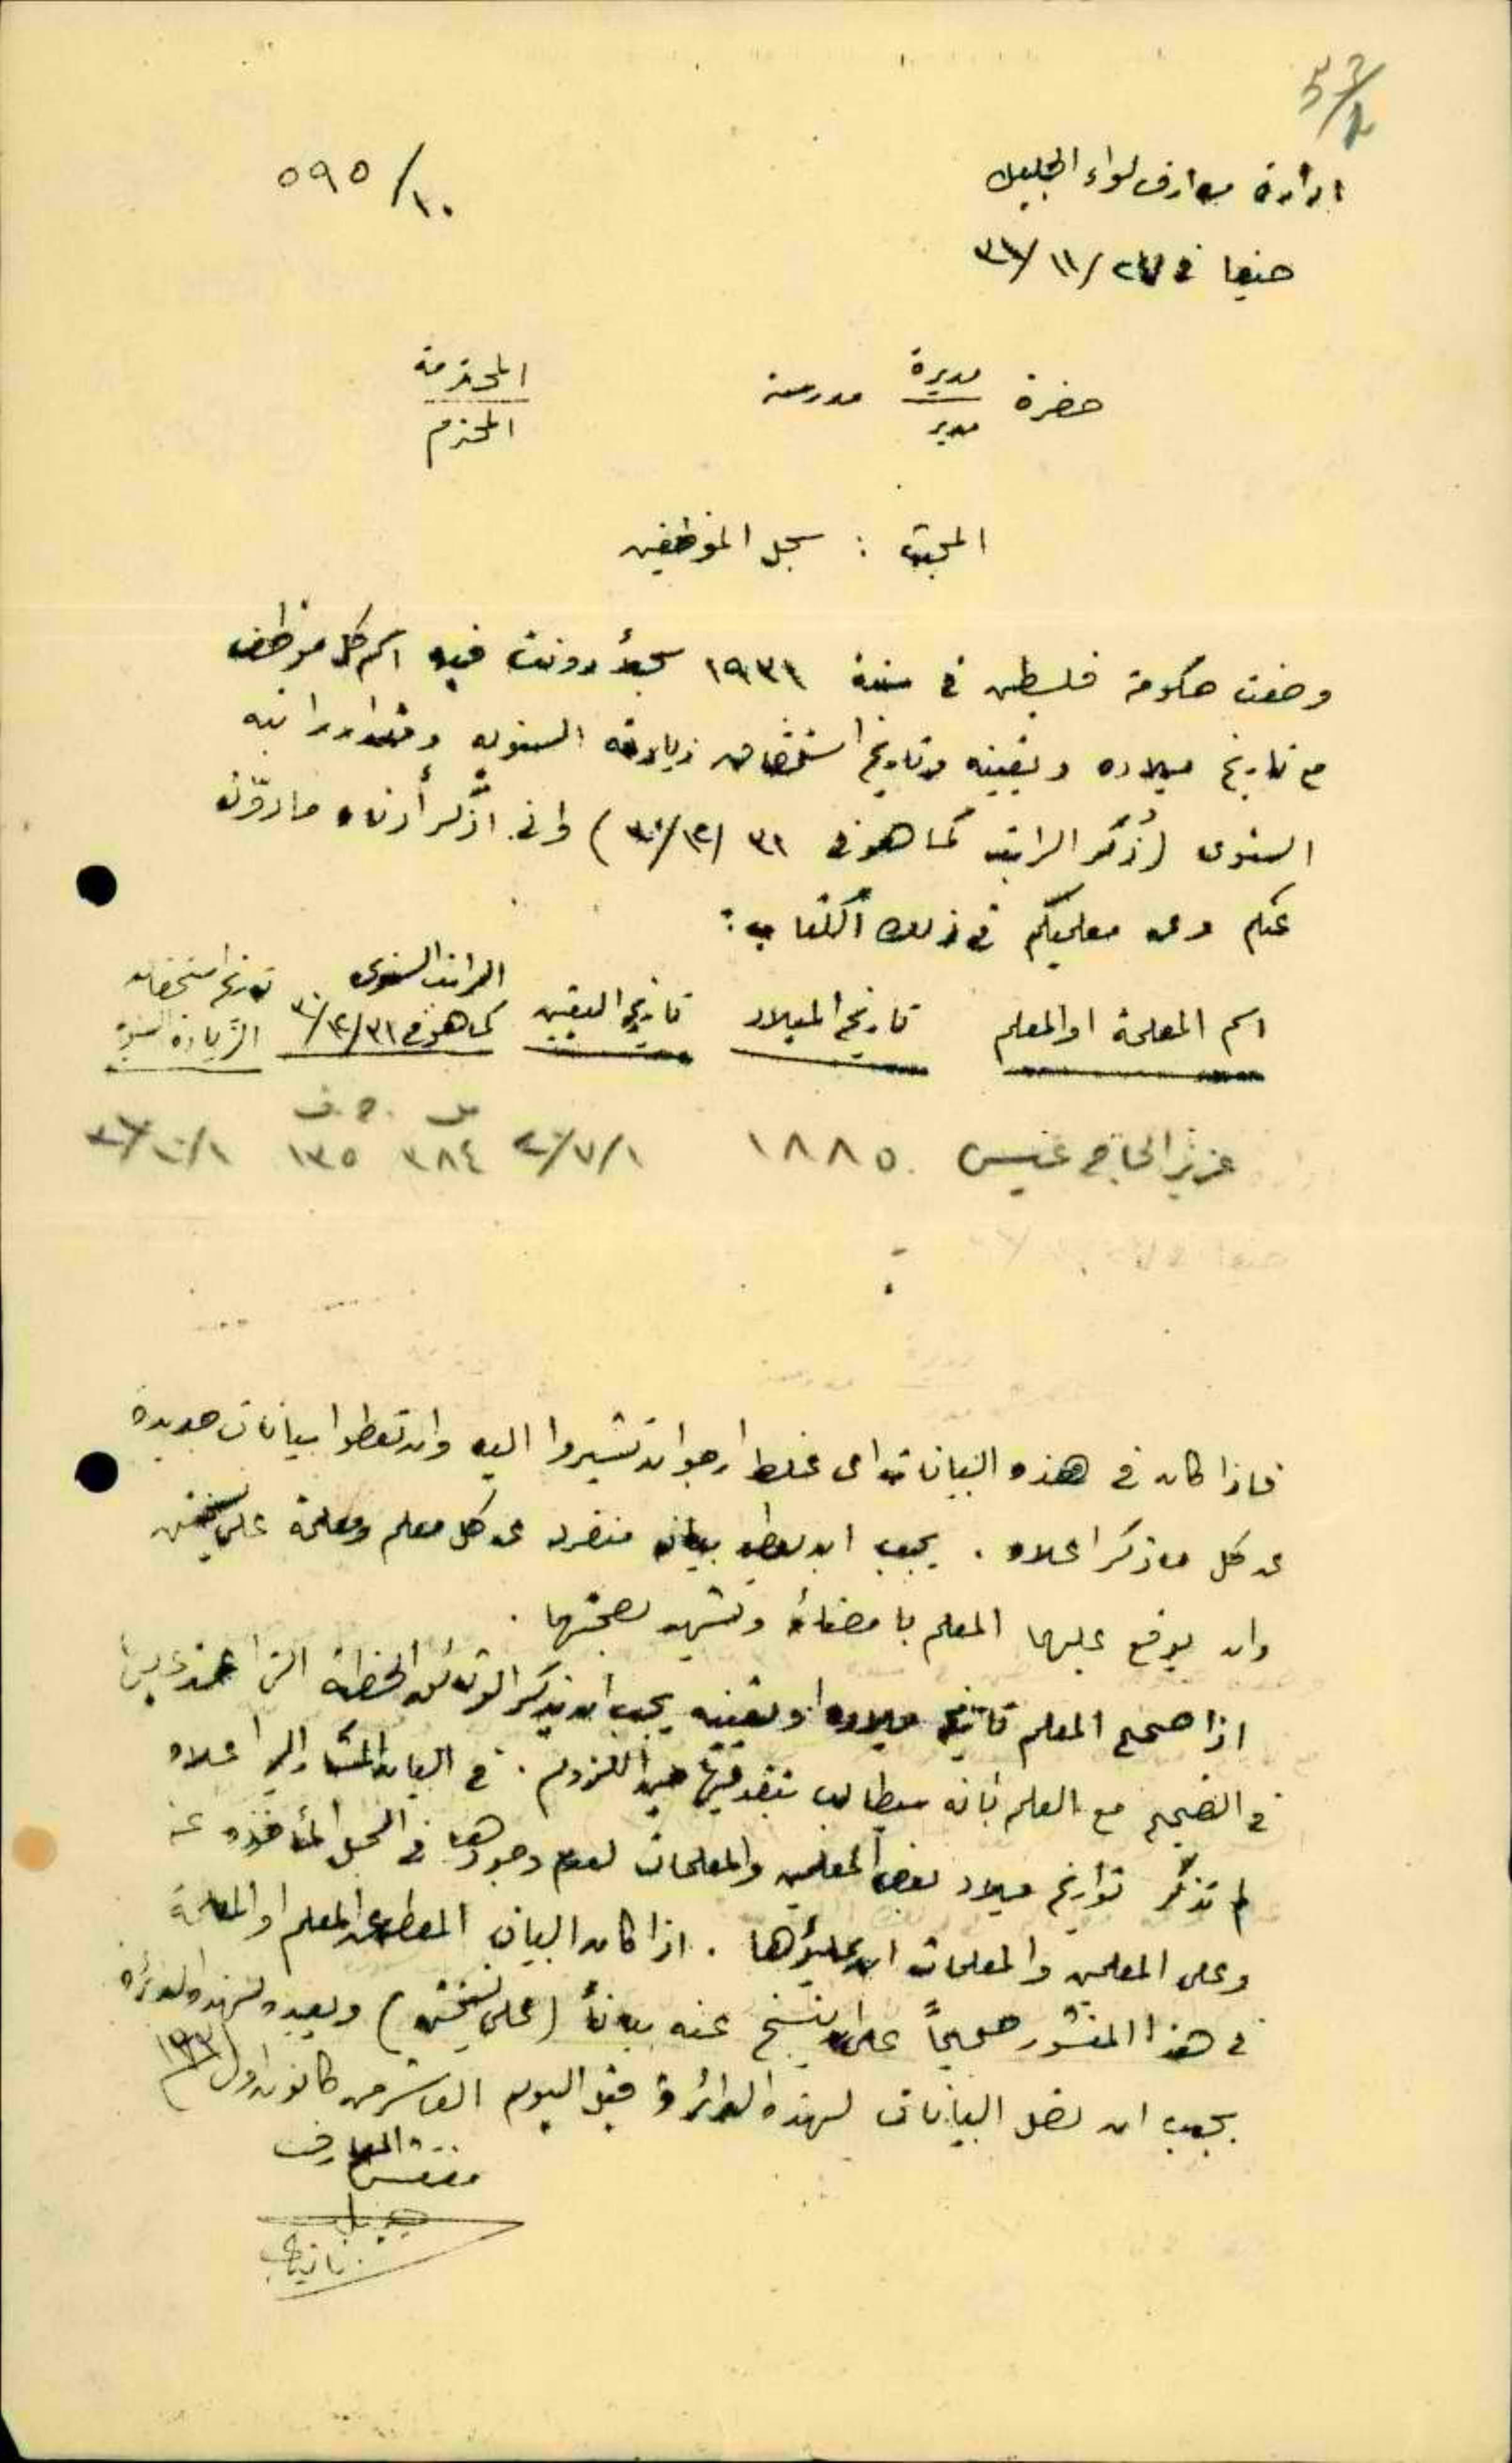 ادارة معارف لواء الجليل
١٠/٥٩٥
حيفا في /١١/٣١
حضرة مديرة مدرسة المحترمة
مدير المحترم
المبحث : سجل الموظفين
وضعت حكومة فلسطين في سنة ١٩٣١ سجلاً دونت فيه اسم كل موظف
مع تاريخ ميلاده وتعيينه وتاريخ استحقاق زيادته السنوية ومقدار راتبه
السنوي (ذُكر الراتب كما هو في ٣١/١٢/٣٠) واني أذكر أدناه ما دوّن
عنكم وعن معلميكم في ذلك الكتاب :
اسم المعلمة او المعلم تاريخ الميلاد تاريخ التعيين الراتب السنوي كما هو في ٣١/١٢/٣٠ تاريخ استحقاق الزيادة السنوية
ج.ف
عزيز الحاج عنيس ١٨٨٥ ١/٧/ ٣٨٤ ١٣٥
فاذا كان في هذه البيانات اي غلط ارجو ان تشيروا اليه وان تعطوا بيانات جديدة
عن كل ما ذكر اعلاه . يجب ان يعطى بيان منفرد عن كل معلم ومعلمة على نسختين
وان يوقع عليها المعلم بامضائه وتشهد بصحتها .
اذا صحح المعلم تاريخ ميلاده او تعيينه يجب ان يذكر الوثائق الخطية التي اعتمد عليها
في التصحيح مع العلم بانه سيطالب بتقديمها حين اللزوم . في البيان المشار اليه اعلاه
لم تذكر تواريخ ميلاد بعض المعلمين والمعلمات لعدم وجودها في السجل المأخوذة عنه
وعلى المعلمين والمعلمات ان يملؤها . اذا كان البيان المعطى عن المعلم او المعلمة
في هذا المنشور صحيحاً عليه ان ينسخ عنه بياناً (على نسختين) ويعيده لهذه الدائرة
يجب ان تصل البيانات لهذه الدائرة قبل اليوم العاشر من كانون اول ١٩٣١
مفتش المعارف